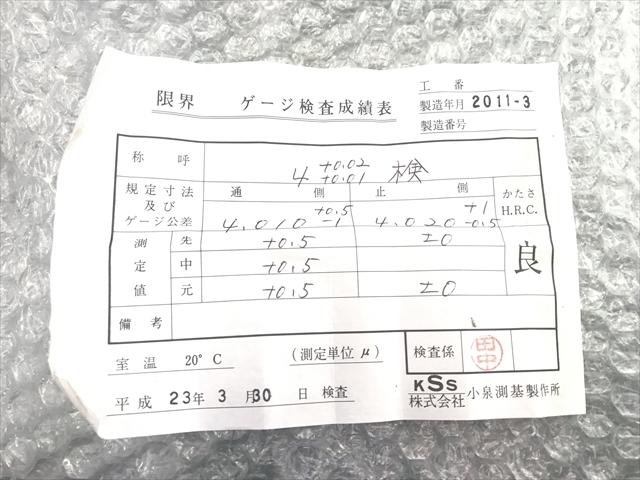 工番
限界 ゲージ検査成績表
製造年月 2011-3
製造番号
称呼 4 +0.02 +0.01 検
規定寸法及びゲージ公差 通側 止側 かたさ H.R.C.
4.010 +0.5 -1 4.020 +1 -0.5
測定値 先 +0.5 ±0 良
中 +0.5
元 +0.5 ±0
備考
室温 20°C (測定単位μ) 検査係 田中
平成 23年 3月 30日 検査
KSS
株式会社 小泉測基製作所